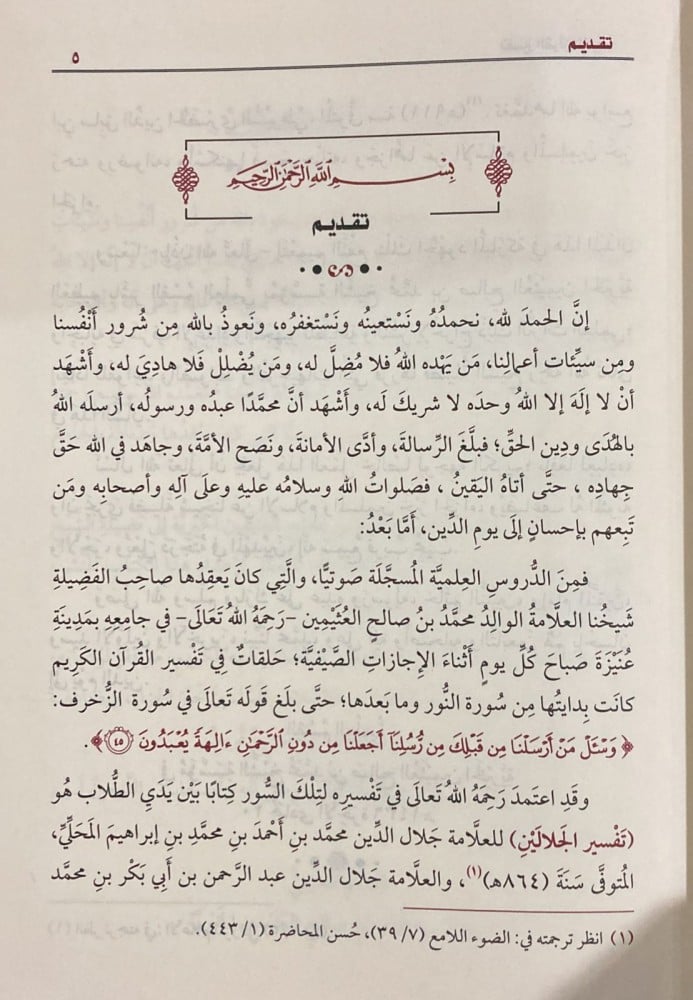 تقديم ٥
بِسْمِ اللَّهِ الرَّحْمَٰنِ الرَّحِيمِ
تقديم
إنَّ الحمدَ لله، نحمدُهُ ونَستعينُه ونَستغفرُه، ونَعوذُ بالله مِن شُرور أَنْفُسنا
ومِن سيِّئات أعمالِنا، مَن يَهْده اللهُ فلا مُضِلَّ له، ومَن يُضْلِلْ فَلا هادِيَ له، وأَشْهَد
أنْ لا إلَهَ إلا اللهُ وحدَه لا شريكَ لَه، وأَشْهَد أنَّ محمَّدًا عبدُه ورسولُه، أرسلَه اللهُ
بالهُدَى ودِين الحقِّ؛ فبلَّغَ الرِّسالةَ، وأدَّى الأمانةَ، ونَصَح الأمَّةَ، وجاهَد في الله حَقَّ
جِهادِه ، حتَّى أتاهُ اليَقينُ ، فصَلواتُ اللهِ وسلامُه عليهِ وعلَى آلِه وأصحابِه ومَن
تَبِعهم بإحسانٍ إلَى يومِ الدِّين، أمَّا بَعْدُ:
فمِنَ الدُّروس العِلميَّة المُسجَّلة صَوتيًّا، والَّتِي كانَ يَعقِدُها صاحِبُ الفَضِيلةِ
شَيخُنا العلَّامةُ الوالِدُ محمَّدُ بنُ صالحٍ العُثَيْمِين -رَحِمَهُ اللهُ تَعَالَى- في جامِعِهِ بمَدِينَةِ
عُنَيْزَةَ صَباحَ كُلِّ يومٍ أَثْناءَ الإِجازاتِ الصَّيْفِيَّة؛ حَلقاتٌ فِي تَفْسير القُرآن الكَرِيم
كانَت بِدايتُها مِن سُورة النُّور وما بعدَها؛ حتَّى بلَغ قَولَه تَعالَى في سُورة الزُّخرف:
﴿وَسْـَٔلْ مَنْ أَرْسَلْنَا مِن قَبْلِكَ مِن رُّسُلِنَآ أَجَعَلْنَا مِن دُونِ ٱلرَّحْمَـٰنِ ءَالِهَةً يُعْبَدُونَ ۝٤٥﴾.
وقَدِ اعتمَدَ رَحِمَهُ اللهُ تَعالَى في تَفْسيرِه لتِلْكَ السُّور كِتابًا بَيْن يَدَيِ الطُّلاب هُو
(تَفْسير الجَلالَيْنِ) للعلَّامة جَلال الدِّين محمد بنِ أَحْمَدَ بنِ محمَّدِ بنِ إبراهيمَ المَحَلِّيِّ،
المُتوفَّى سَنَةَ (٨٦٤هـ)(١)، والعلَّامة جَلال الدِّين عبد الرَّحمن بن أَبِي بَكْر بنِ محمَّد
(١) انظر ترجمته في: الضوء اللامع (٧/ ٣٩)، حُسن المحاضرة (١/ ٤٤٣).